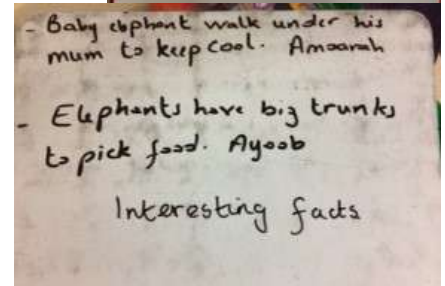 - Baby elephant walk under his
mum to keep cool. Amaarah
- Elephants have big trunks
to pick food. Ayoob
Interesting facts